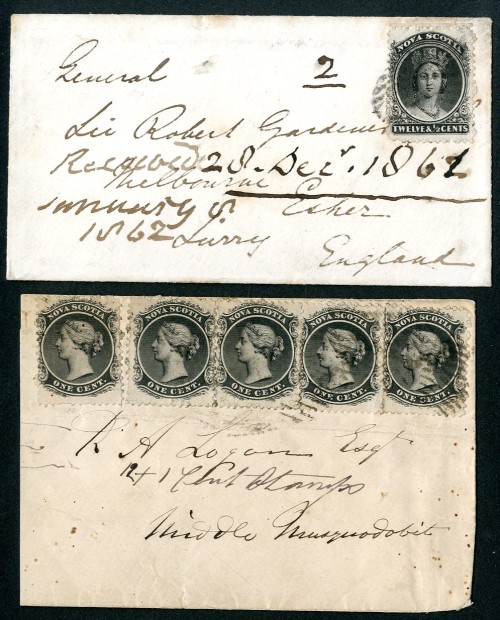 NOVA SCOTIA
TWELVE & ½ CENTS
General
2
Sir Robert Gardener
Received 28. Decr. 1861
Melbourne
January 8. Esher
1862 Surry
England
NOVA SCOTIA NOVA SCOTIA NOVA SCOTIA NOVA SCOTIA NOVA SCOTIA
ONE CENT. ONE CENT. ONE CENT. ONE CENT. ONE CENT.
R A Logan Esqr
12 + 1 Cent Stamps
Middle Musquodobit